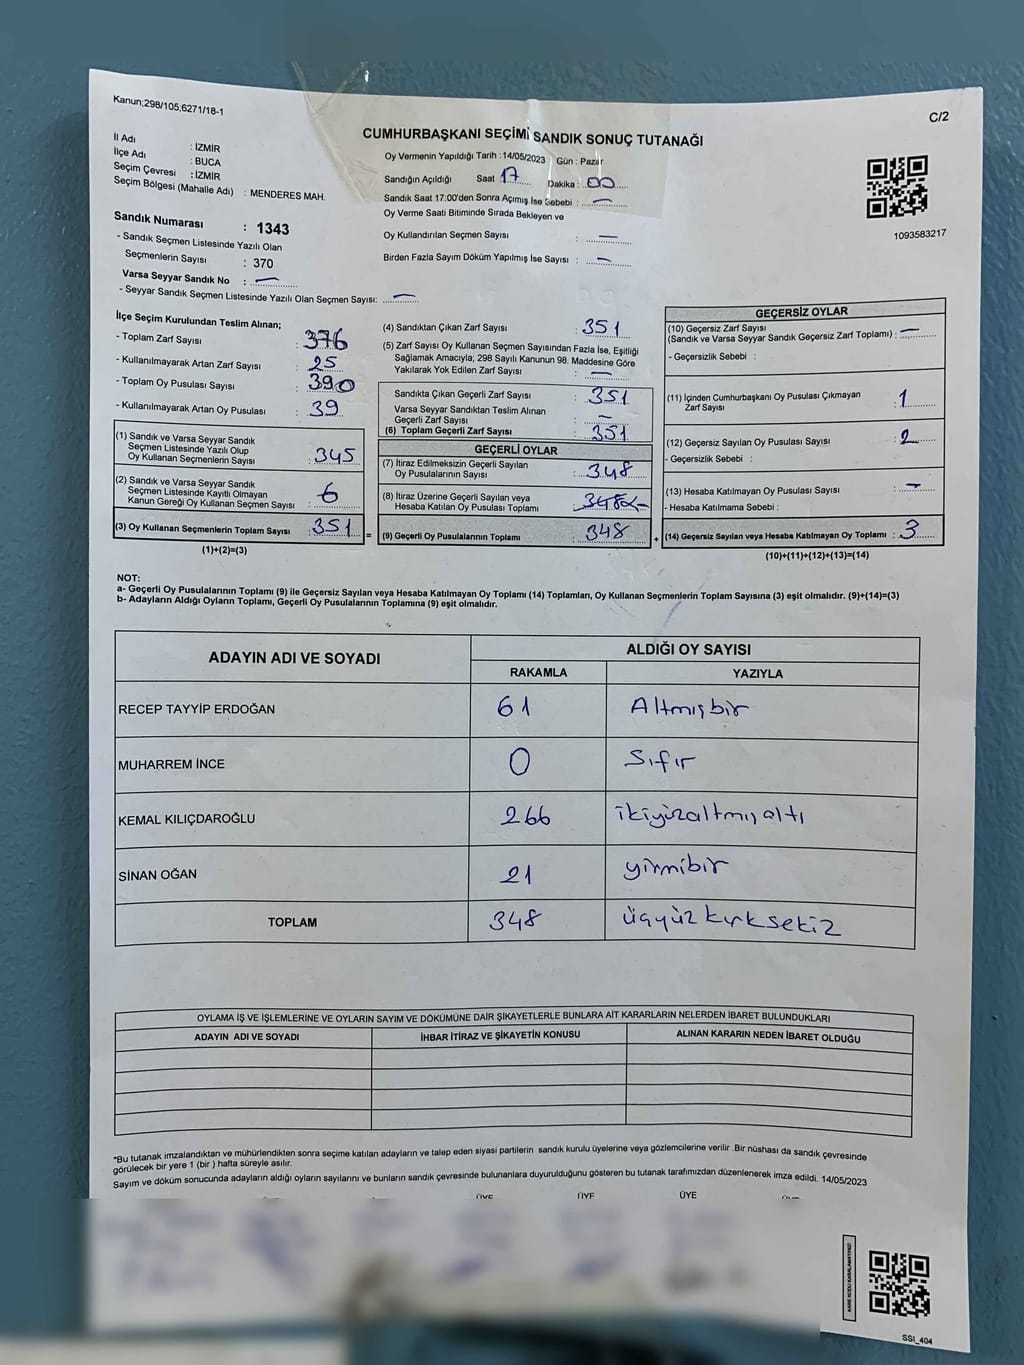 Kanun;298/105,6271/18-1
C/2
CUMHURBAŞKANI SEÇİMİ SANDIK SONUÇ TUTANAĞI
İl Adı : İZMİR
İlçe Adı : BUCA
Seçim Çevresi : İZMİR
Seçim Bölgesi (Mahalle Adı) : MENDERES MAH.
Oy Vermenin Yapıldığı Tarih : 14/05/2023 Gün : Pazar
Sandığın Açıldığı Saat 17 Dakika : 00
Sandık Saat 17:00'den Sonra Açımış İse Sebebi : —
Oy Verme Saati Bitiminde Sırada Bekleyen ve
Oy Kullandırılan Seçmen Sayısı : —
Birden Fazla Sayım Döküm Yapılmış İse Sayısı : —
1093583217
Sandık Numarası : 1343
- Sandık Seçmen Listesinde Yazılı Olan
Seçmenlerin Sayısı : 370
Varsa Seyyar Sandık No : —
- Seyyar Sandık Seçmen Listesinde Yazılı Olan Seçmen Sayısı: —
İlçe Seçim Kurulundan Teslim Alınan;
- Toplam Zarf Sayısı : 376
- Kullanılmayarak Artan Zarf Sayısı : 25
- Toplam Oy Pusulası Sayısı : 390
- Kullanılmayarak Artan Oy Pusulası : 39
(1) Sandık ve Varsa Seyyar Sandık
Seçmen Listesinde Yazılı Olup
Oy Kullanan Seçmenlerin Sayısı : 345
(2) Sandık ve Varsa Seyyar Sandık
Seçmen Listesinde Kayıtlı Olmayan
Kanun Gereği Oy Kullanan Seçmen Sayısı : 6
(3) Oy Kullanan Seçmenlerin Toplam Sayısı : 351
(1)+(2)=(3)
=
(4) Sandıktan Çıkan Zarf Sayısı : 351
(5) Zarf Sayısı Oy Kullanan Seçmen Sayısından Fazla İse, Eşitliği
Sağlamak Amacıyla; 298 Sayılı Kanunun 98. Maddesine Göre
Yakılarak Yok Edilen Zarf Sayısı : —
Sandıkta Çıkan Geçerli Zarf Sayısı : 351
Varsa Seyyar Sandıktan Teslim Alınan
Geçerli Zarf Sayısı : —
(6) Toplam Geçerli Zarf Sayısı : 351
GEÇERLİ OYLAR
(7) İtiraz Edilmeksizin Geçerli Sayılan
Oy Pusulalarının Sayısı : 348
(8) İtiraz Üzerine Geçerli Sayılan veya
Hesaba Katılan Oy Pusulası Toplamı :
(9) Geçerli Oy Pusulalarının Toplamı : 348
+
GEÇERSİZ OYLAR
(10) Geçersiz Zarf Sayısı
(Sandık ve Varsa Seyyar Sandık Geçersiz Zarf Toplamı) : —
- Geçersizlik Sebebi :
(11) İçinden Cumhurbaşkanı Oy Pusulası Çıkmayan
Zarf Sayısı : 1
(12) Geçersiz Sayılan Oy Pusulası Sayısı : 2
- Geçersizlik Sebebi :
(13) Hesaba Katılmayan Oy Pusulası Sayısı : —
- Hesaba Katılmama Sebebi :
(14) Geçersiz Sayılan veya Hesaba Katılmayan Oy Toplamı : 3
(10)+(11)+(12)+(13)=(14)
NOT:
a- Geçerli Oy Pusulalarının Toplamı (9) ile Geçersiz Sayılan veya Hesaba Katılmayan Oy Toplamı (14) Toplamları, Oy Kullanan Seçmenlerin Toplam Sayısına (3) eşit olmalıdır. (9)+(14)=(3)
b- Adayların Aldığı Oyların Toplamı, Geçerli Oy Pusulalarının Toplamına (9) eşit olmalıdır.
ADAYIN ADI VE SOYADI
ALDIĞI OY SAYISI
RAKAMLA YAZIYLA
RECEP TAYYİP ERDOĞAN 61 Altmışbir
MUHARREM İNCE 0 Sıfır
KEMAL KILIÇDAROĞLU 266 ikiyüzaltmışaltı
SİNAN OĞAN 21 yirmibir
TOPLAM 348 üçyüz kırksekiz
OYLAMA İŞ VE İŞLEMLERİNE VE OYLARIN SAYIM VE DÖKÜMÜNE DAİR ŞİKAYETLERLE BUNLARA AİT KARARLARIN NELERDEN İBARET BULUNDUKLARI
ADAYIN ADI VE SOYADI İHBAR İTİRAZ VE ŞİKAYETİN KONUSU ALINAN KARARIN NEDEN İBARET OLDUĞU
*Bu tutanak imzalandıktan ve mühürlendikten sonra seçime katılan adayların ve talep eden siyasi partilerin sandık kurulu üyelerine veya gözlemcilerine verilir .Bir nüshası da sandık çevresinde
görülecek bir yere 1 (bir ) hafta süreyle asılır.
Sayım ve döküm sonucunda adayların aldığı oyların sayılarını ve bunların sandık çevresinde bulunanlara duyurulduğunu gösteren bu tutanak tarafımızdan düzenlenerek imza edildi. 14/05/2023
ÜYE ÜYE ÜYE
KARE KODU KARALAMAYINIZ!
SSI_404